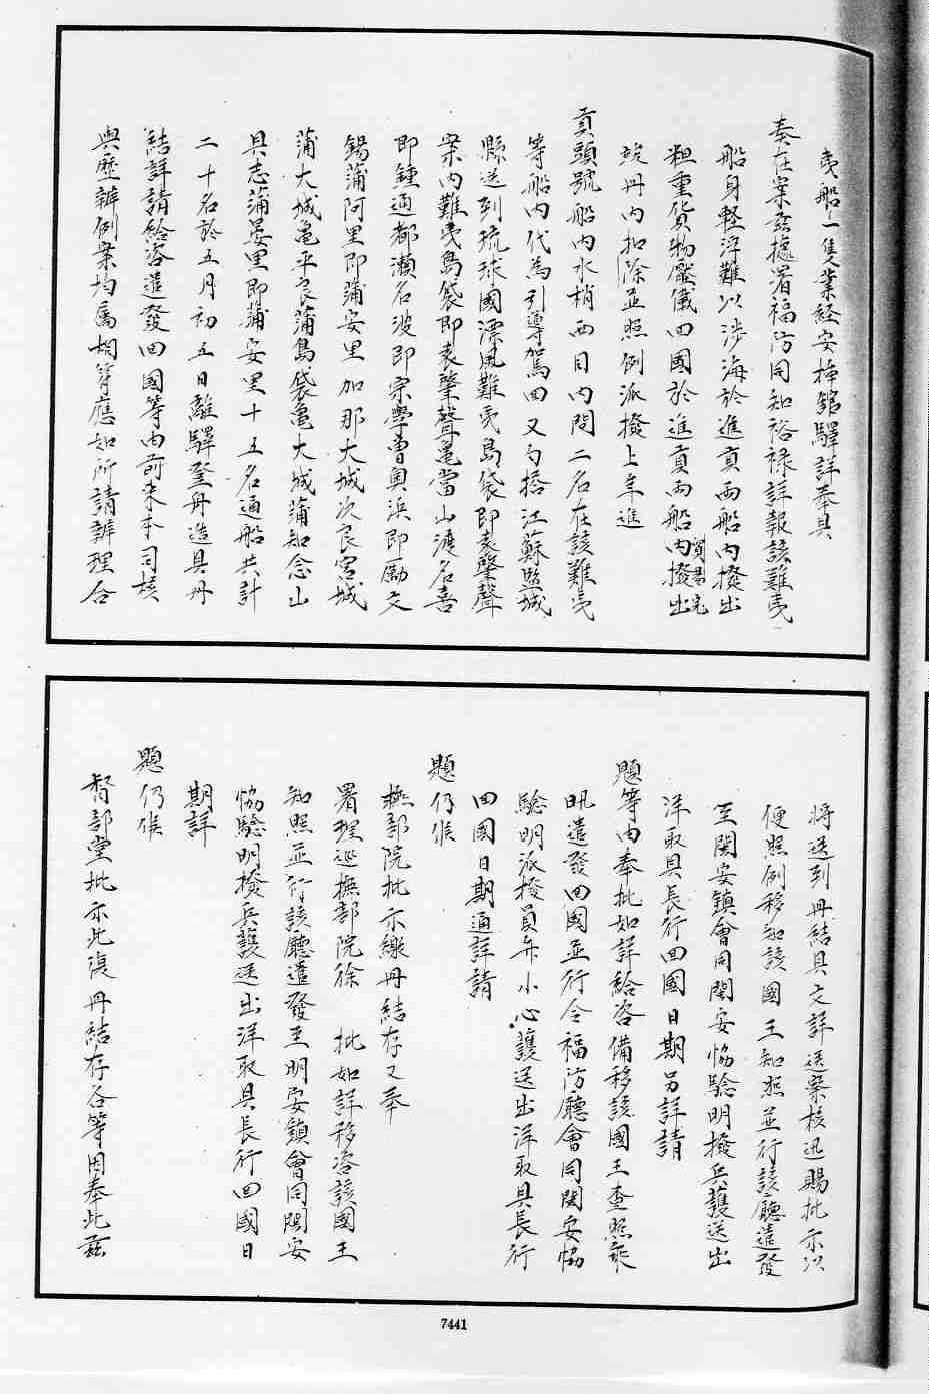 夷船一隻業經安揷館驛詳奉具
奏在案茲據署福防同知裕祿詳報該難夷
船身輕浮難以涉海於進貢兩船內撥出
粗重貨物壓儀回國於進貢兩船內撥出
號冊內扣除並照例派撥上年進
貢頭號船內水梢西目內間二名在該難夷
等船內代為引導駕回又勻搭江蘇鹽城
縣送到琉球國漂風難夷島袋即袁肇聲
案內難夷島袋即袁肇聲亀當山渡名喜
即鍾通都瀬名波即宗學曽奥浜即勵文
錫蒲阿里即蒲安里加那大城次良宮城
蒲大城亀平良蒲島袋亀大城蒲知念山
具志蒲晏里即蒲安里十五名通船共計
二十名於五月初五日離驛登舟造具冊
結詳請給咨遣發回國等由前來本司核
與歷辦例案均屬相等應如所請辦理合
將送到冊結具文詳送察核迅賜批示以
便照例移知該國王知照並行該廳遣發
至閩安鎮會同閩安協驗明撥兵護送出
洋取具長行回國日期另詳請
題等由奉批如詳給咨備移該國王查照乘
汛遣發回國並行令福防廳會同閩安協
驗明派撥員弁小心護送出洋取具長行
回國日期通詳請
題仍候
撫部院批示繳冊結存又奉
署理巡撫部院徐 批如詳移咨該國王
知照並行該廳遣發至明安鎮會同閩安
協驗明撥兵護送出洋取具長行回國日
期詳
題仍候
督部堂批示此復冊結存各等因奉此茲
7441